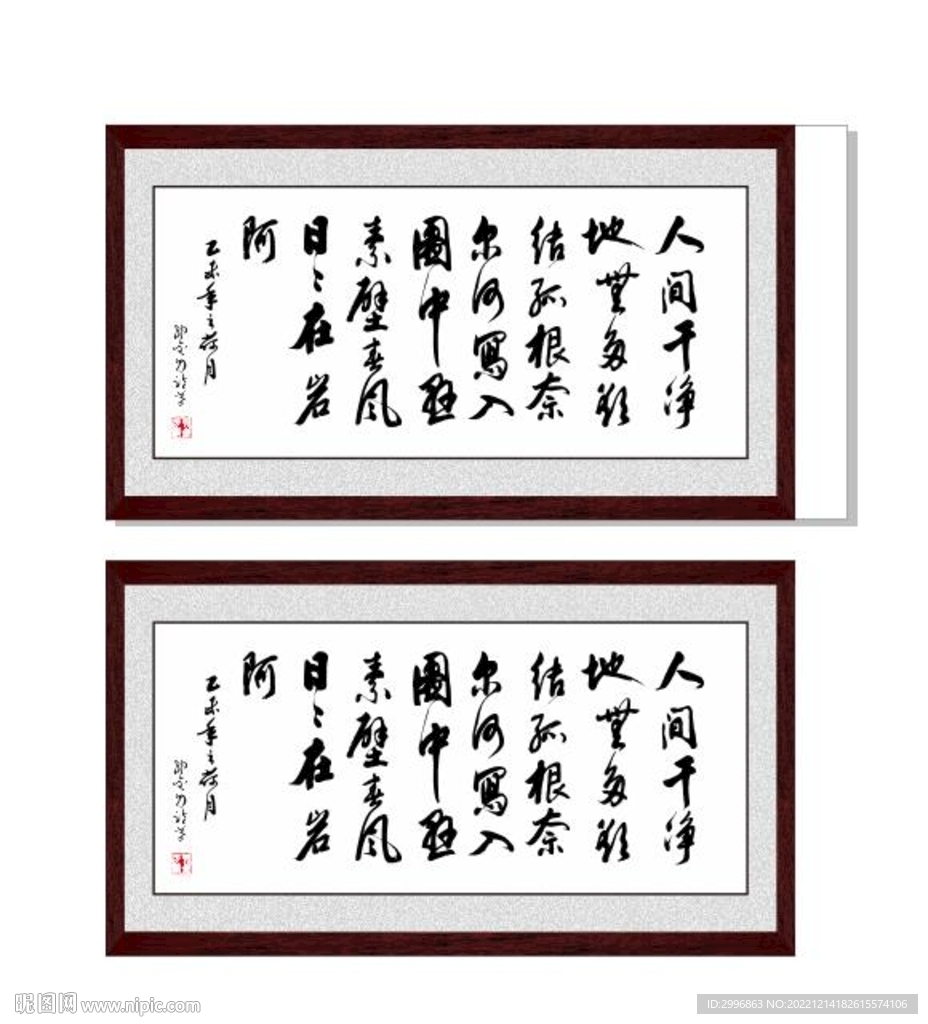 人间干净
地無多欲
结孤根奈
尔何寫入
圖中悬
素壁春风
日々在岩
阿
乙未年之荷月
人间干净
地無多欲
结孤根奈
尔何寫入
圖中悬
素壁春风
日々在岩
阿
乙未年之荷月
昵图网 www.nipic.com
ID:2996863 NO:20221214182615574106